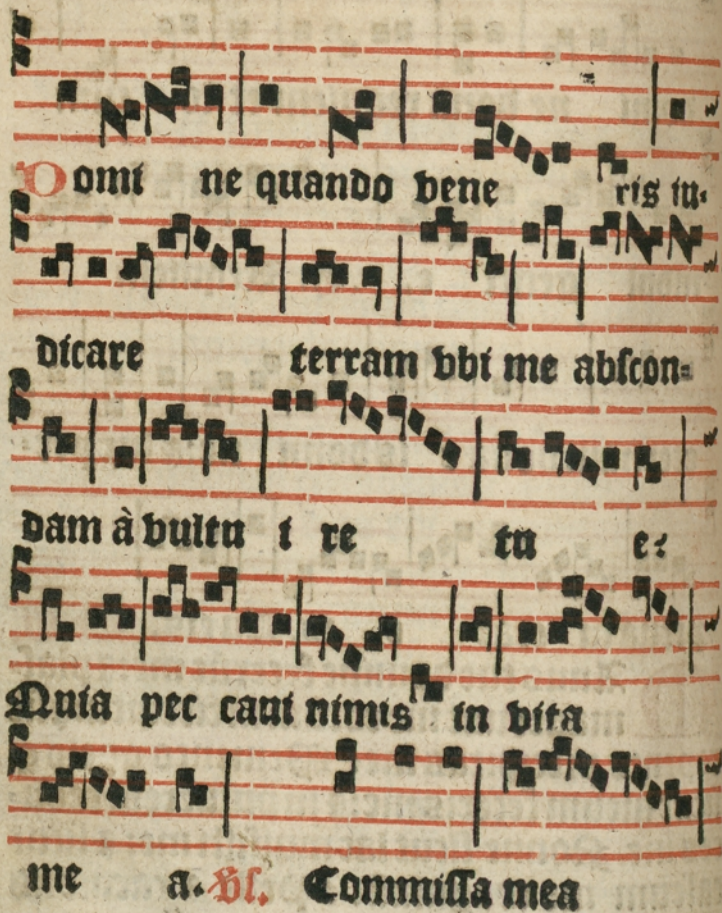 Domi ne quando vene ris iu-
dicare terram vbi me abscon=
dam à vultu i re tu e:
Quia pec caui nimis in vita
me a. Vs. Commissa mea